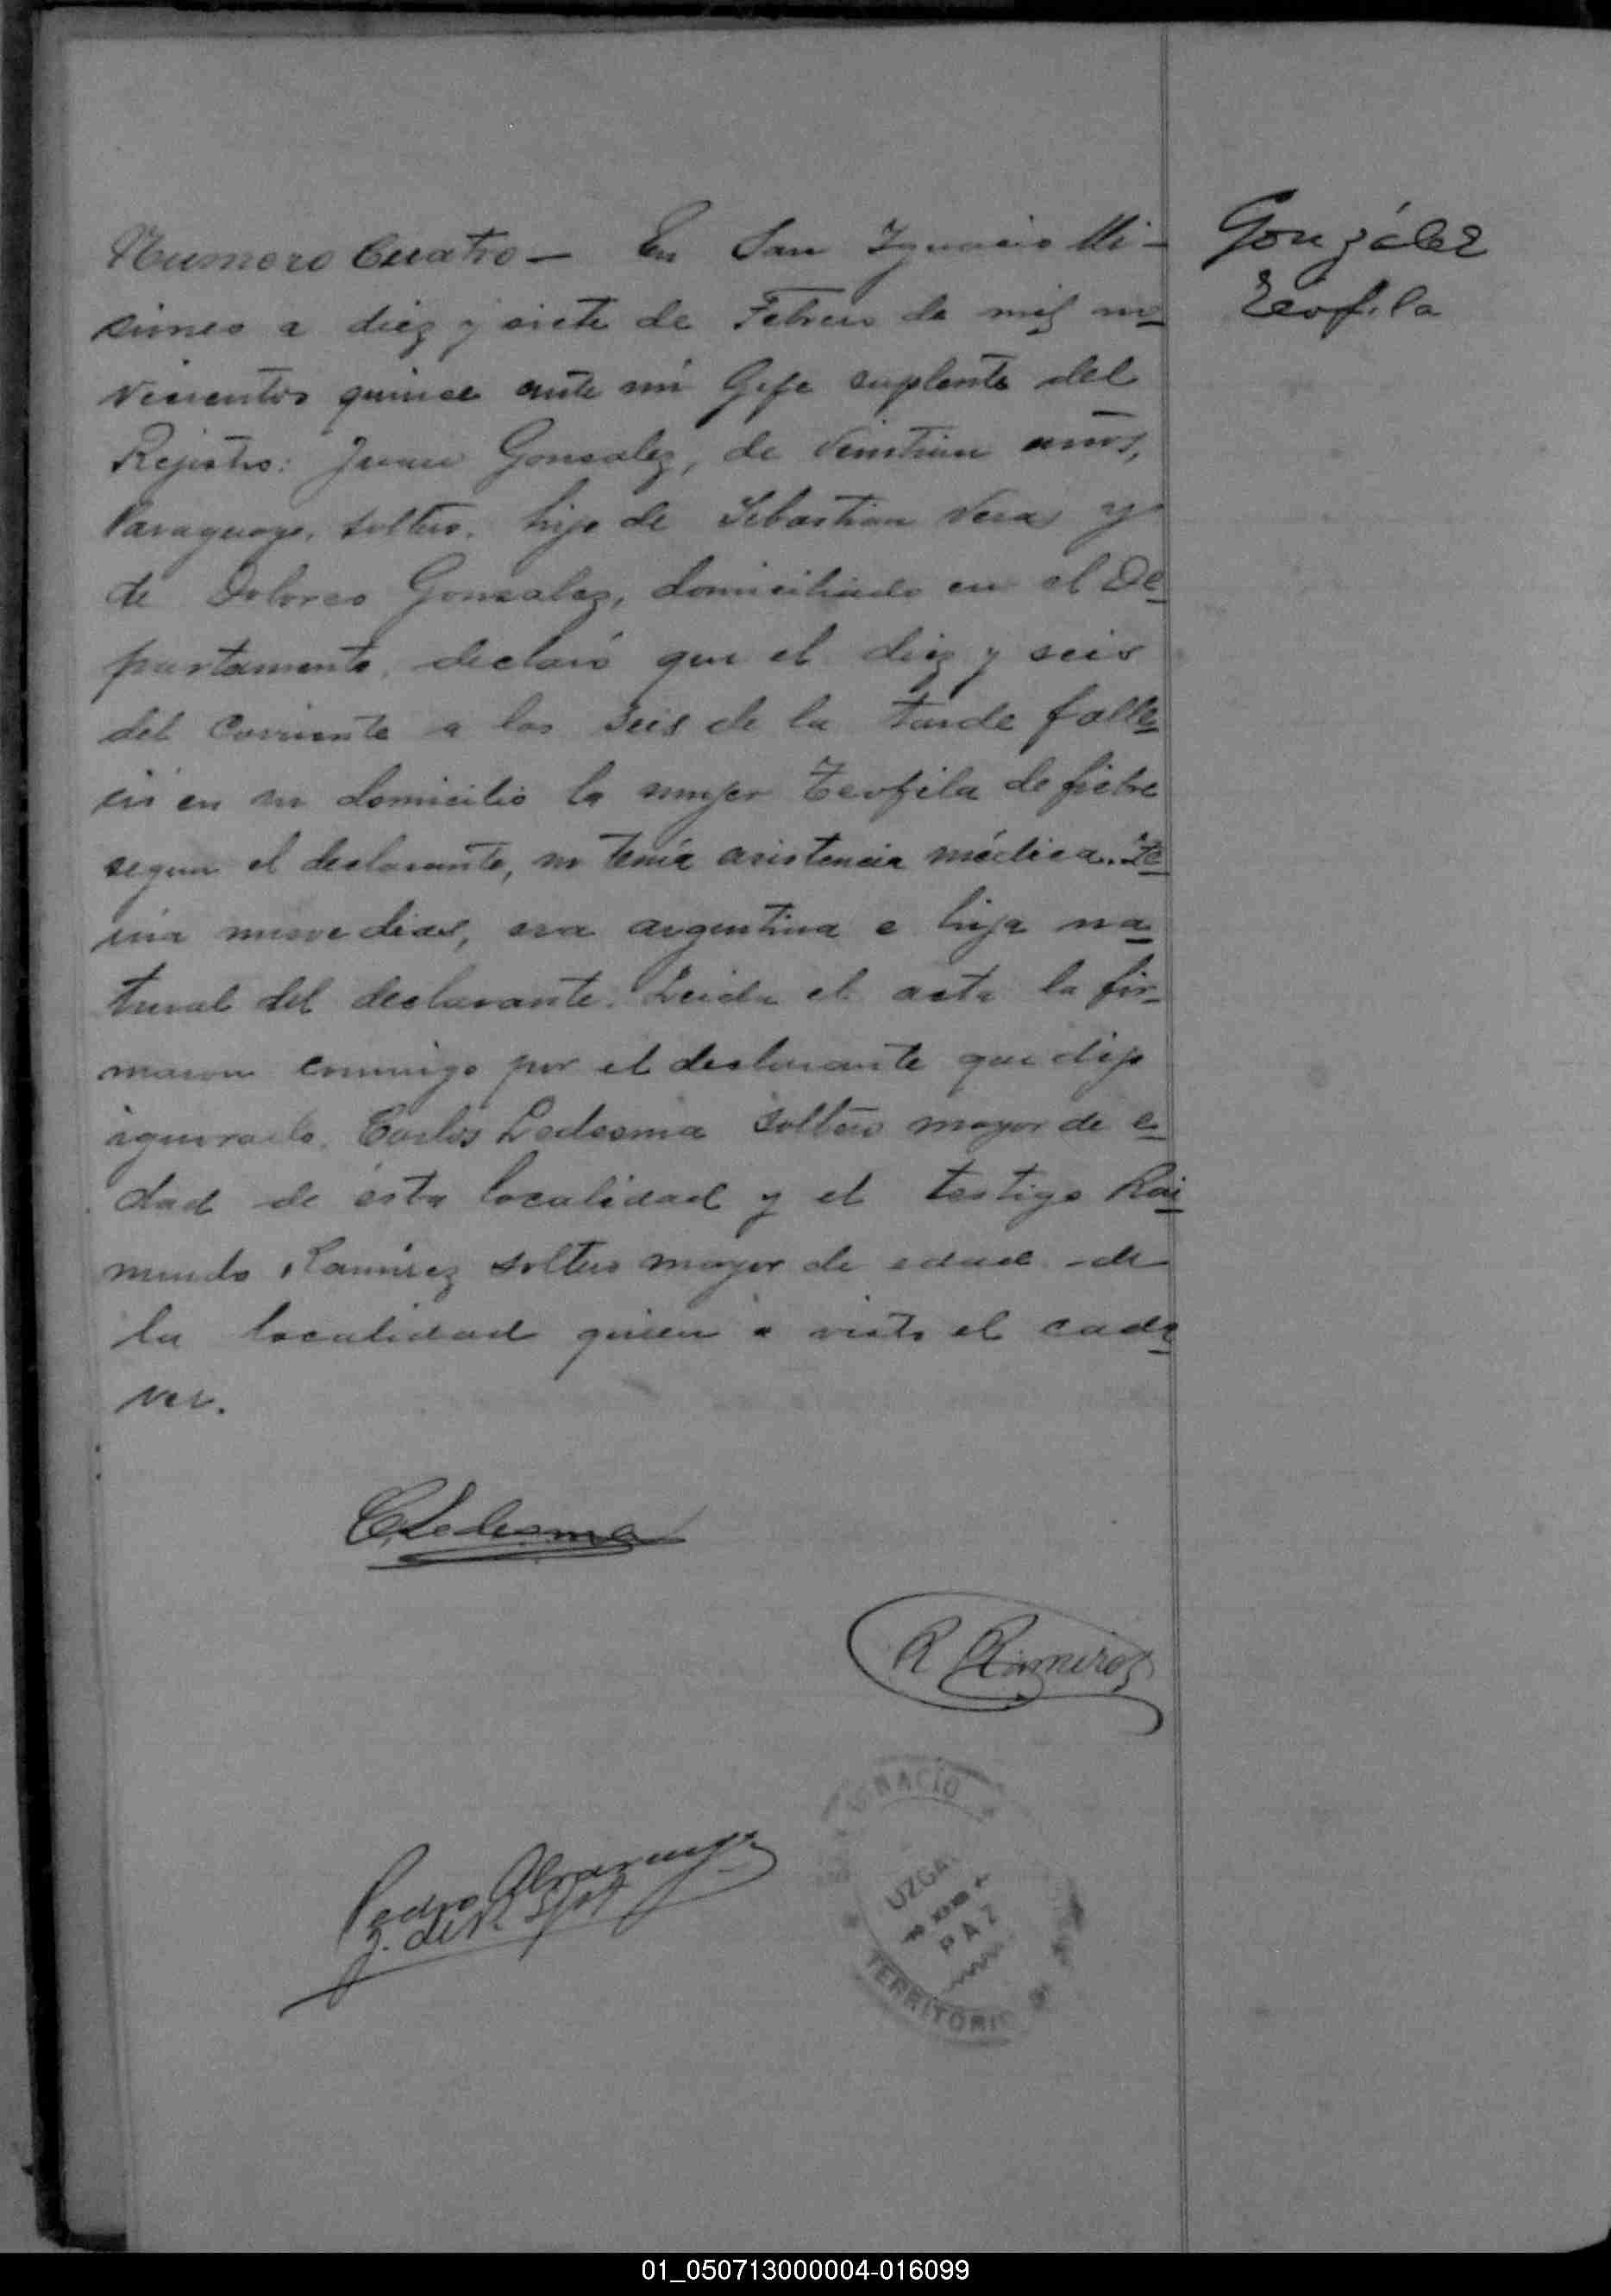 Numero Cuatro — En San Ignacio Mi-
siones a diez y siete de Febrero de mil no
vecientos quince ante mi Gefe suplente del
Rejistro: Juan Gonzalez, de veintiun años,
Paraguayo, soltero, hijo de Sebastian Vera y
de Dolores Gonzalez, domiciliado en el De
partamento, declaró que el diez y seis
del corriente a las seis de la tarde falle
ció en su domicilio la mujer Teofila de fiebre
segun el declarante, no tenía asistencia médica. Te
nia nueve dias, era argentina e hija na
tural del declarante. Leida el acta la fir-
maron conmigo por el declarante que dijo
ignorarlo. Carlos Ledesma soltero mayor de e
dad de ésta localidad y el testigo Rai
mundo Ramirez soltero mayor de edad de
la localidad quien a visto el cada
ver.
González
Teofila
C Ledesma
R Ramirez
Pedro
J. del R. Splt
IGNACIO
UZGA
PAZ
TERRITORIO
01_050713000004-016099